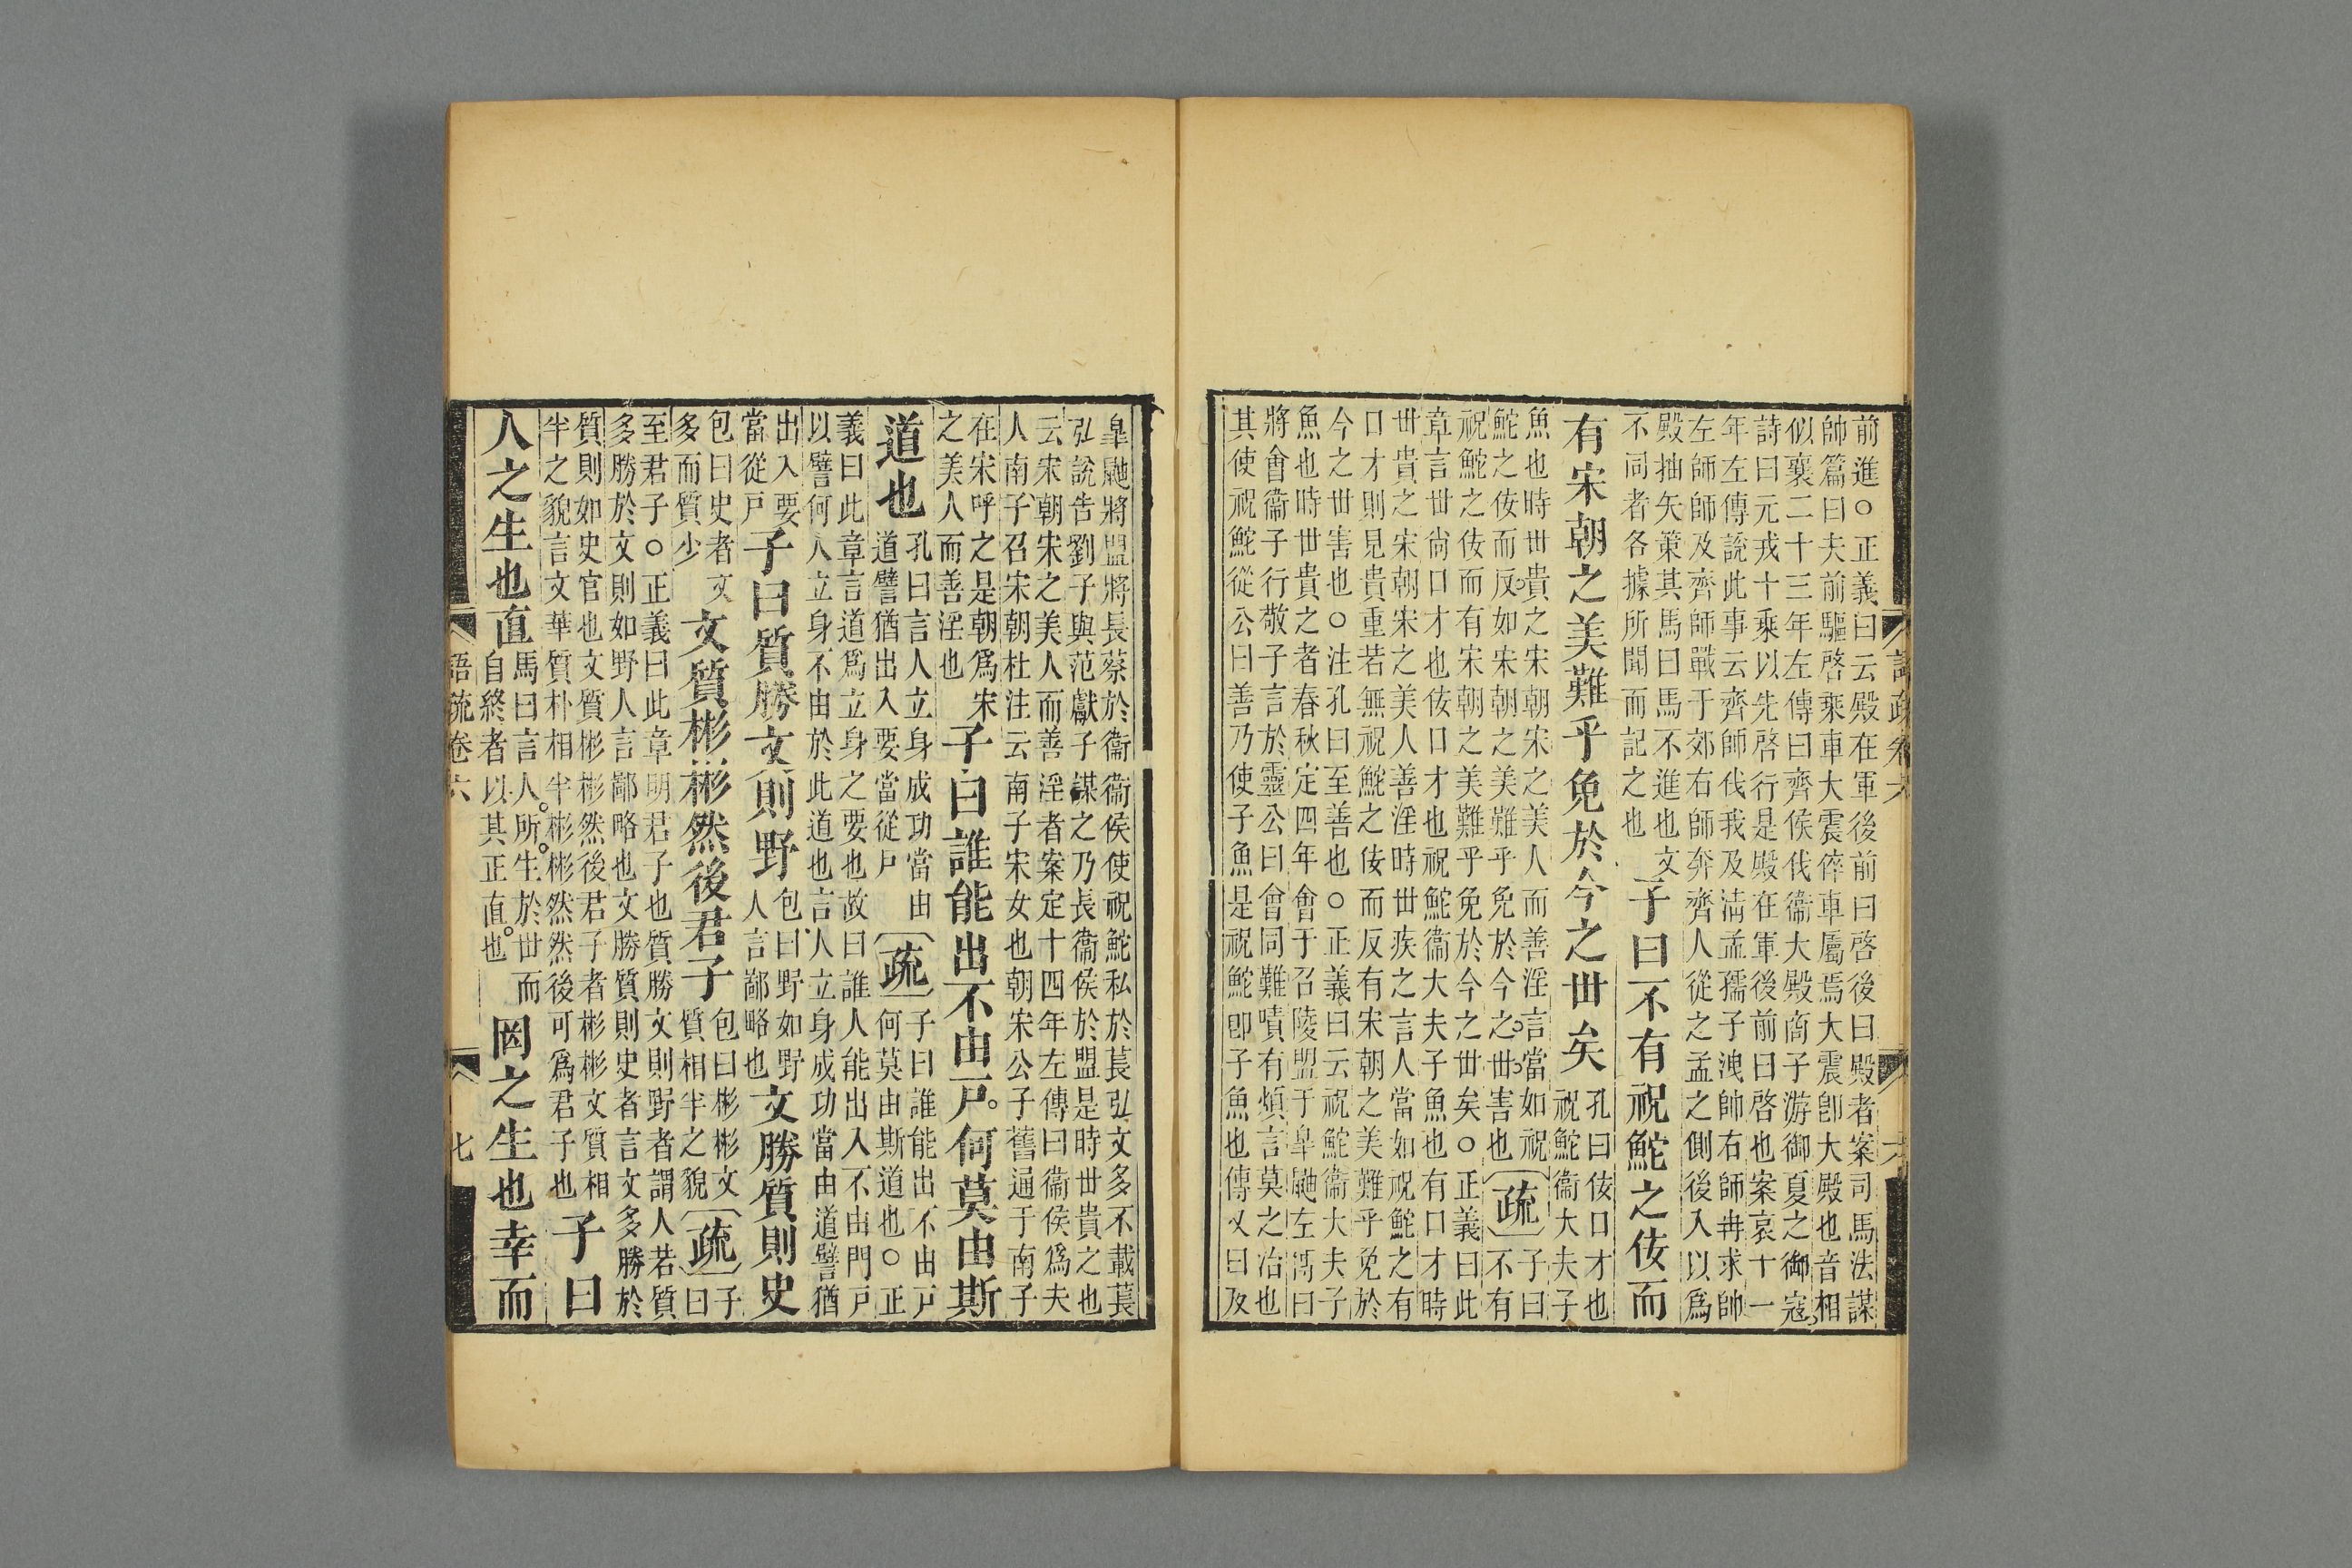 前進○正義曰云殿在軍後前曰啓後曰殿者案司馬法謀
帥篇曰夫前驅啓乘車大震倅車屬焉大震卽大殿也音相
似襄二十三年左傳曰齊侯伐衞大殿商子游御夏之御寇
詩曰元戎十乘以先啓行是殿在軍後前曰啓也案哀十一
年左傳說此事云齊師伐我及淸孟孺子洩帥右師冉求帥
左師師及齊師戰于郊右師奔齊人從之孟之側後入以爲
殿抽矢策其馬曰馬不進也文
不同者各據所聞而記之也
子曰不有祝鮀之佞而
有宋朝之美難乎免於今之世矣
孔曰佞口才也
祝鮀衞大夫子
魚也時世貴之宋朝宋之美人而善淫言當如祝
鮀之佞而反如宋朝之美難乎免於今之世害也
疏
子曰
不有
祝鮀之佞而有宋朝之美難乎免於今之世矣○正義曰此
章言世尙口才也佞口才也祝鮀衞大夫子魚也有口才時
世貴之宋朝宋之美人善淫時世疾之言人當如祝鮀之有
口才則見貴重若無祝鮀之佞而反有宋朝之美難乎免於
今之世害也○注孔曰至善也○正義曰云祝鮀衞大夫子
魚也時世貴之者春秋定四年會于召陵盟于皐鼬左傳曰
將會衞子行敬子言於靈公曰會同難嘖有煩言莫之治也
其使祝鮀從公曰善乃使子魚是祝鮀卽子魚也傳又曰及
皐鼬將盟將長蔡於衞衞侯使祝鮀私於萇弘文多不載萇
弘說告劉子與范獻子謀之乃長衞侯於盟是時世貴之也
云宋朝宋之美人而善淫者案定十四年左傳曰衞侯爲夫
人南子召宋朝杜注云南子宋女也朝宋公子舊通于南子
在宋呼之是朝爲宋
之美人而善淫也
子曰誰能出不由戸何莫由斯
道也
孔曰言人立身成功當由
道譬猶出入要當從戸
疏
子曰誰能出不由戸
何莫由斯道也○正
義曰此章言道爲立身之要也故曰誰人能出入不由門戸
以譬何人立身不由於此道也言人立身成功當由道譬猶
出入要
當從戸
子曰質勝文則野
包曰野如野
人言鄙略也
文勝質則史
包曰史者文
多而質少
文質彬彬然後君子
包曰彬彬文
質相半之貌
疏
子
曰
至君子○正義曰此章明君子也質勝文則野者謂人若質
多勝於文則如野人言鄙略也文勝質則史者言文多勝於
質則如史官也文質彬彬然後君子者彬彬文質相
半之貌言文華質朴相半彬彬然然後可爲君子也
子曰
人之生也直
馬曰言人所生於世而
自終者以其正直也
罔之生也幸而
語疏卷六
七